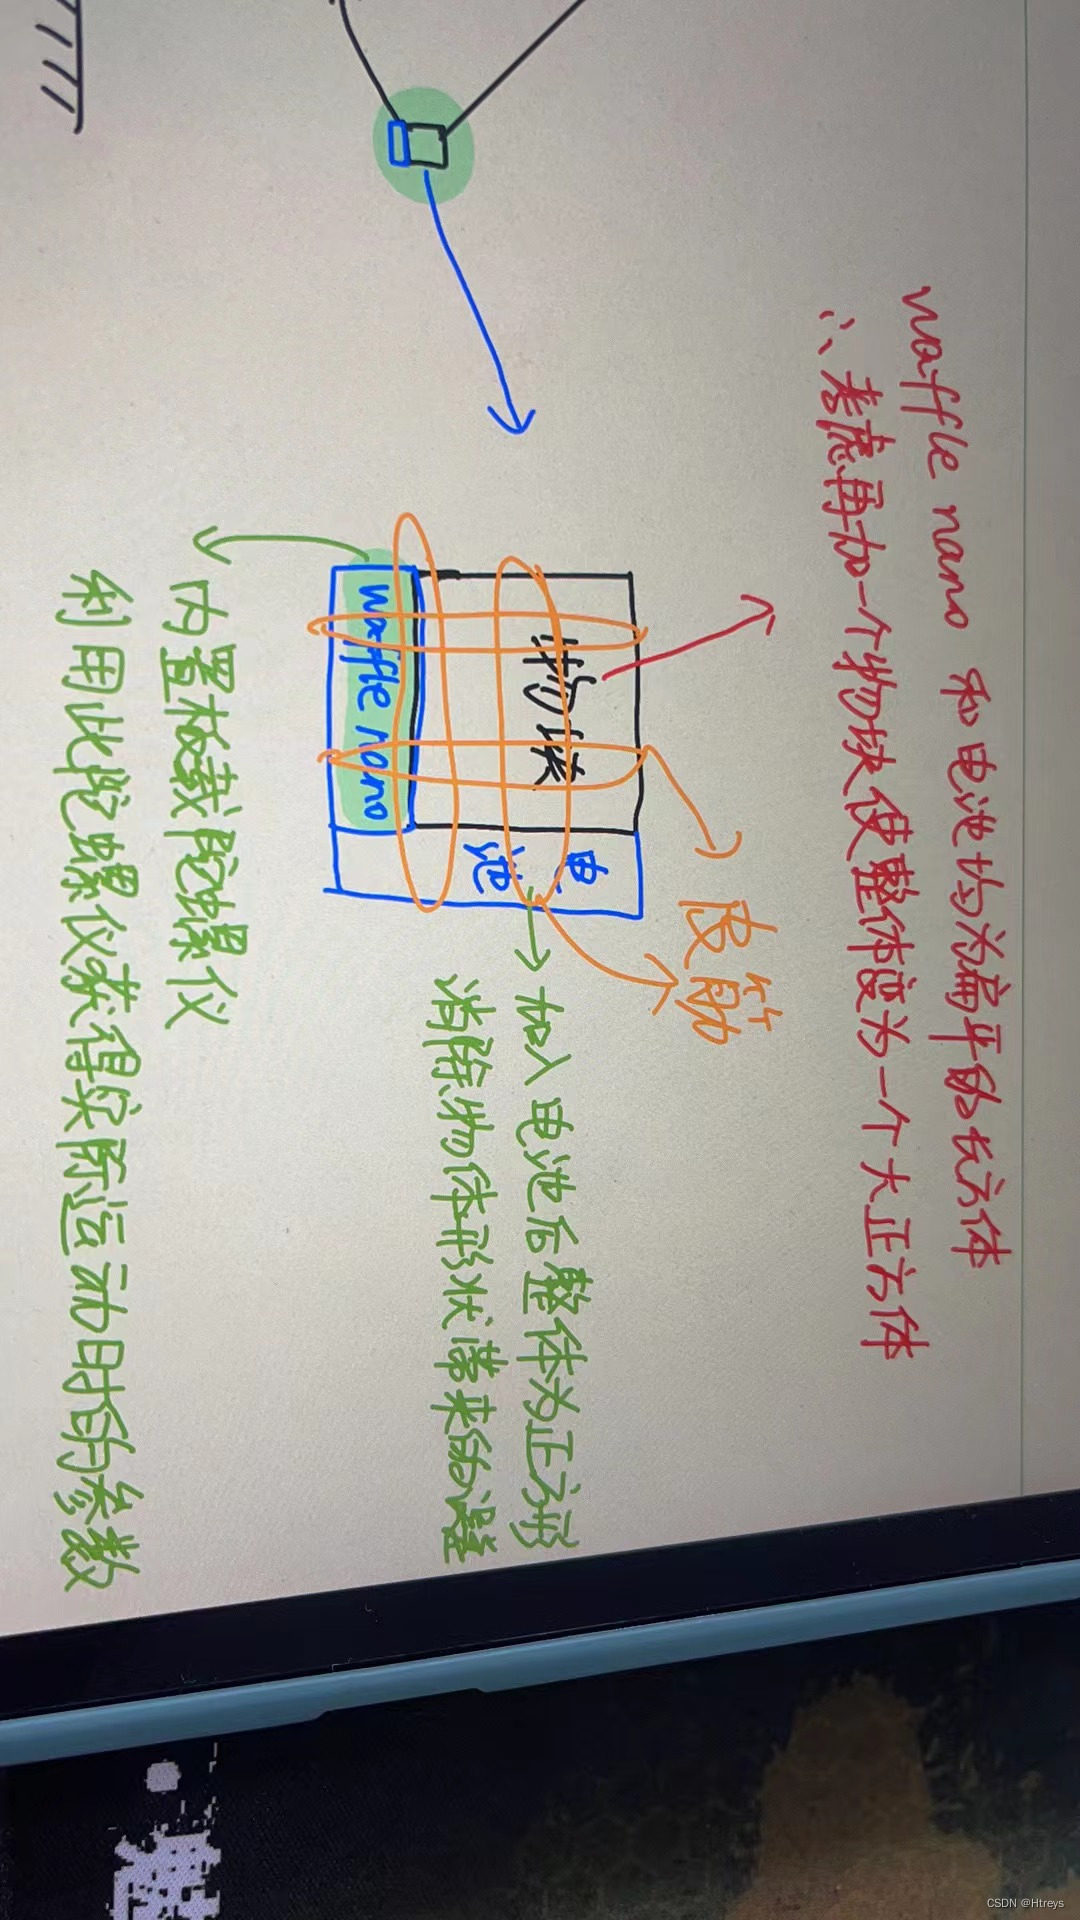 waffle nano 和电池均为扁平的长方体
∴考虑再加一个物块使整体变为一个大正方体
皮筋
物块
电池
waffle nano
加入电池后整体为正方形
消除物体形状带来的误差
内置板载陀螺仪
利用此陀螺仪获得实际运动时的参数
CSDN @Htreys